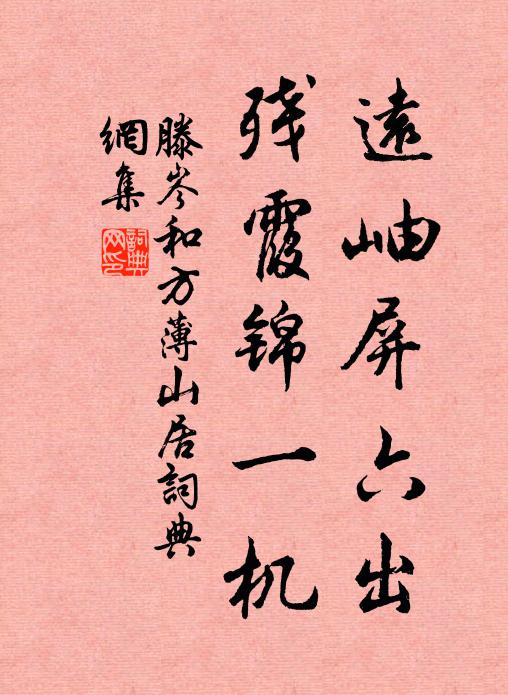 遠岫屏六出
残霞锦一机
滕岑和方薄山居詞典
網集
詞典網印